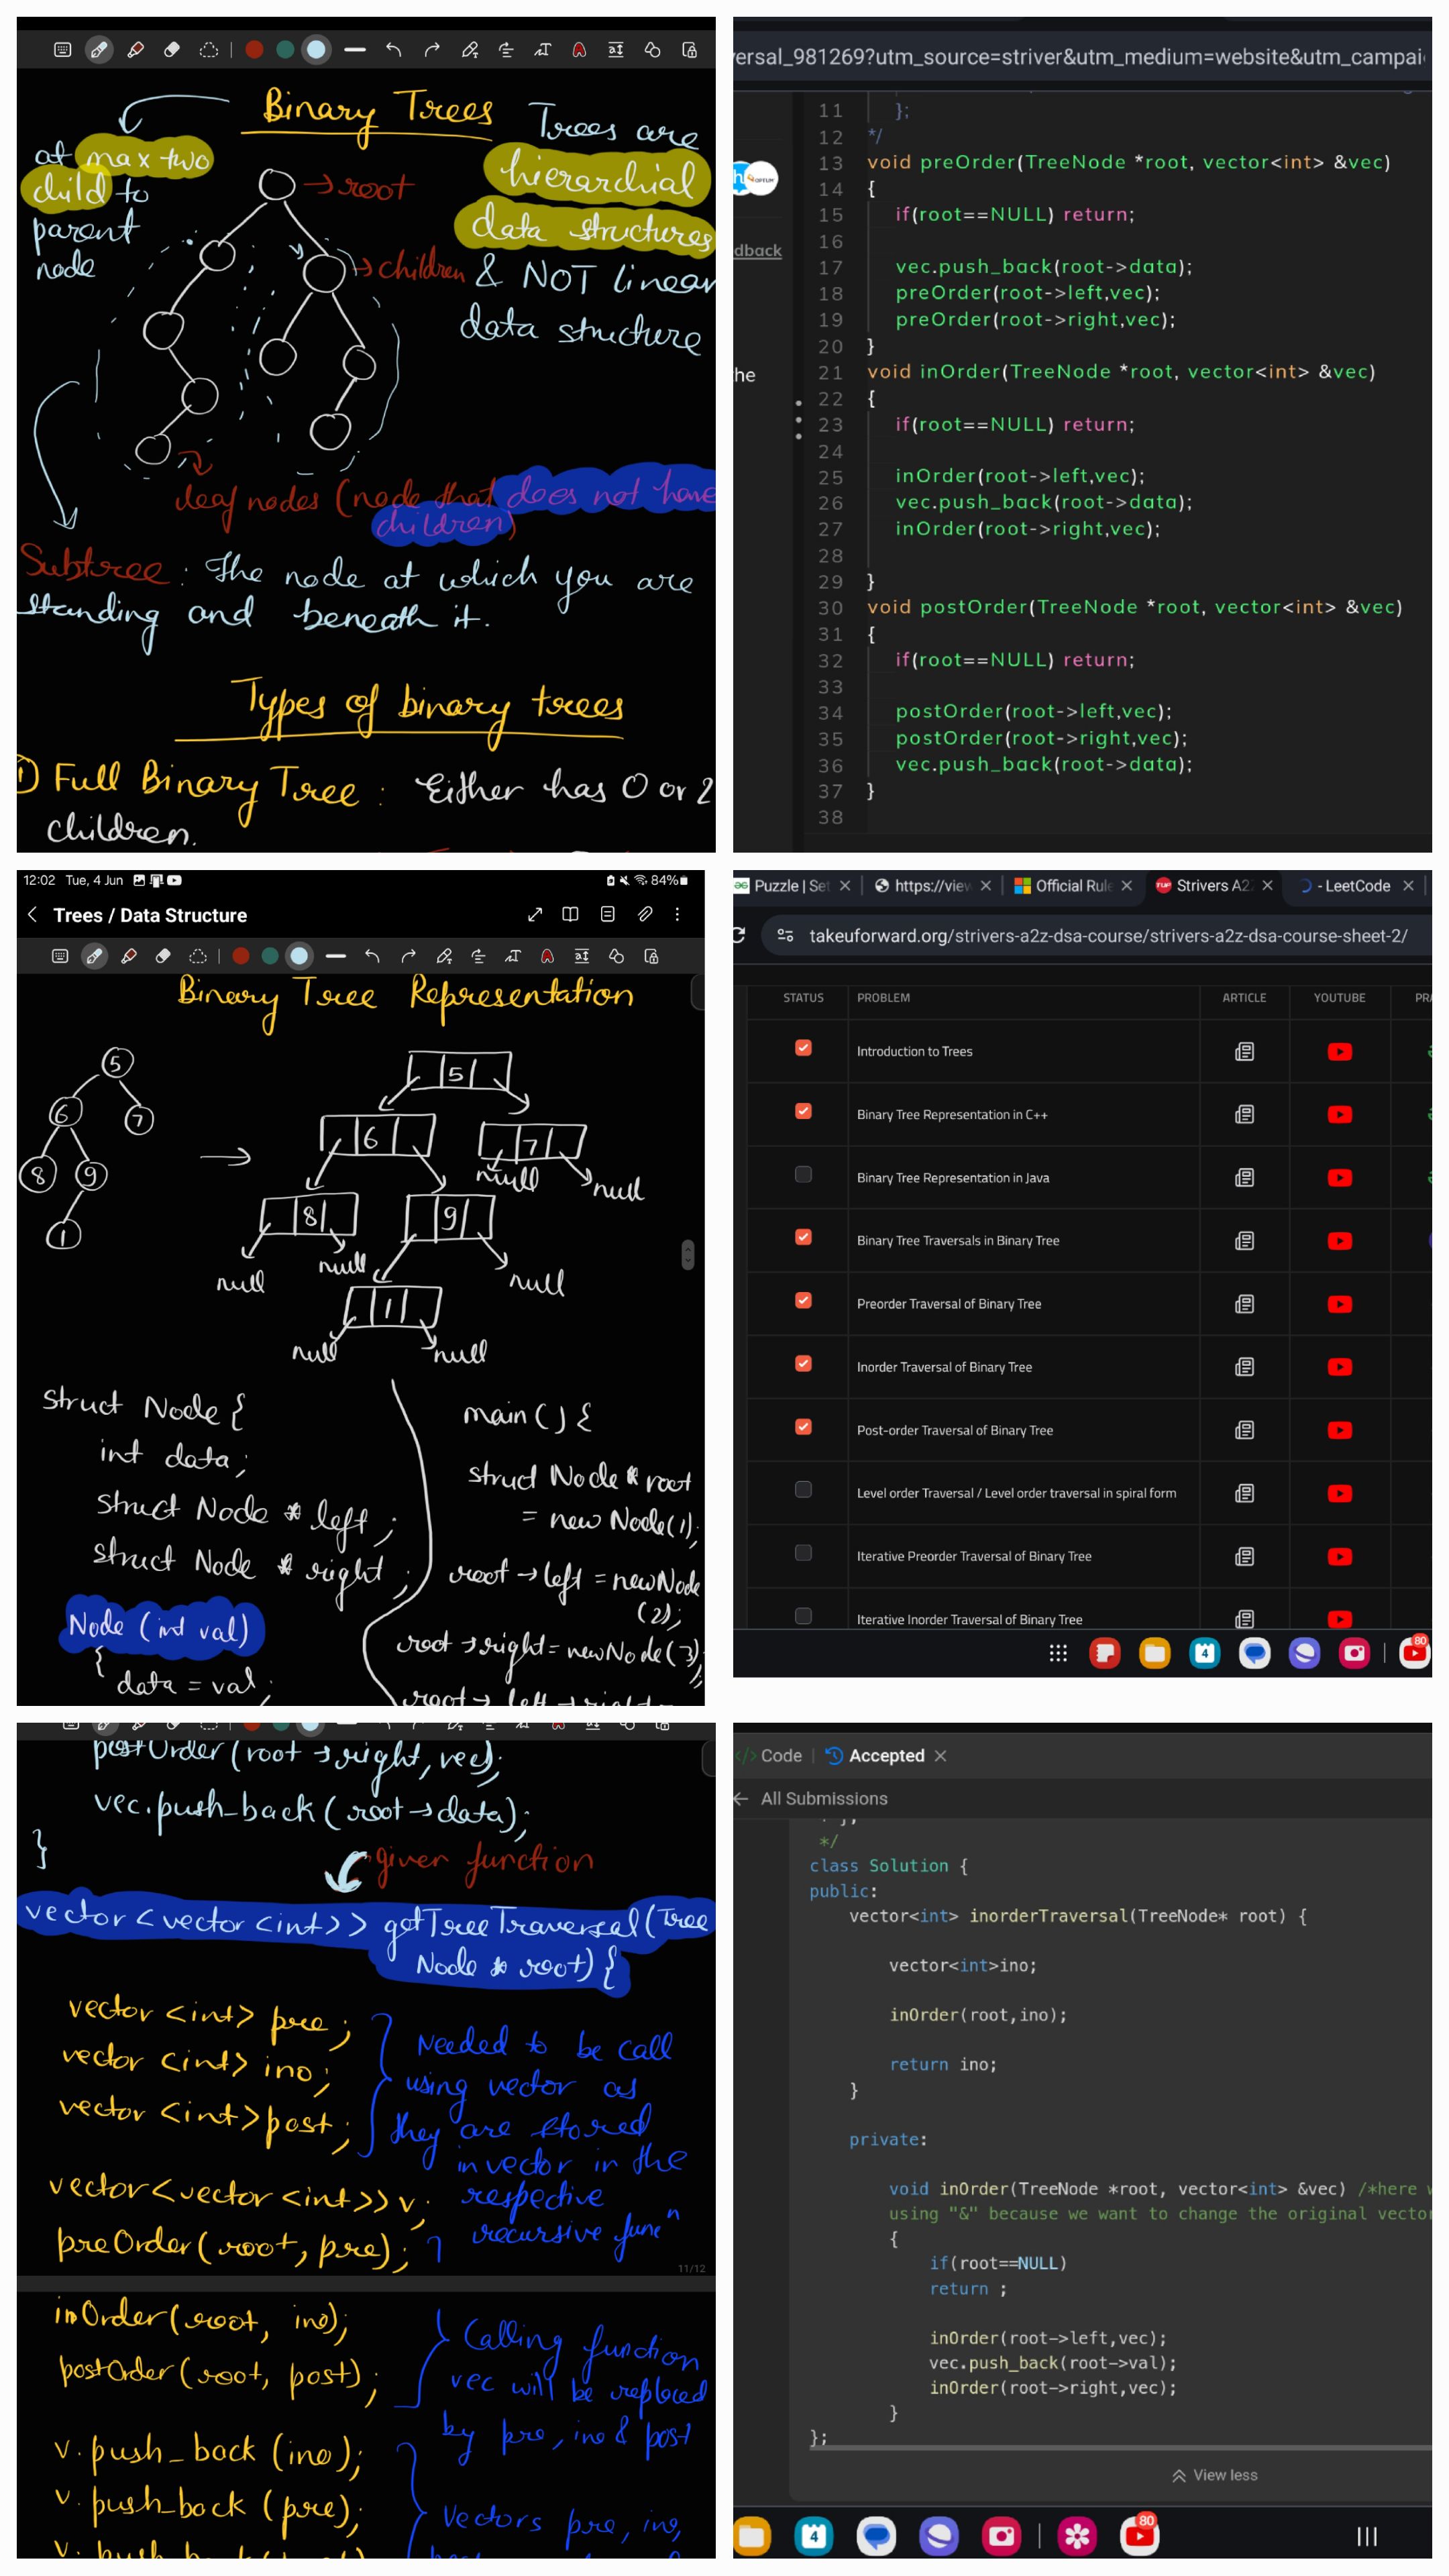 Binary Trees
Trees are
hierarchial
data structures
& NOT linear
data structure
at max two
child to
parent
node
→ root
→ children
leaf nodes (node that does not have
children)
Subtree : The node at which you are
standing and beneath it.
Types of binary trees
① Full Binary Tree : Either has 0 or 2
children.
ersal_981269?utm_source=striver&utm_medium=website&utm_campai
dback
he
11 };
12 */
13 void preOrder(TreeNode *root, vector<int> &vec)
14 {
15 if(root==NULL) return;
16
17 vec.push_back(root->data);
18 preOrder(root->left,vec);
19 preOrder(root->right,vec);
20 }
21 void inOrder(TreeNode *root, vector<int> &vec)
22 {
23 if(root==NULL) return;
24
25 inOrder(root->left,vec);
26 vec.push_back(root->data);
27 inOrder(root->right,vec);
28
29 }
30 void postOrder(TreeNode *root, vector<int> &vec)
31 {
32 if(root==NULL) return;
33
34 postOrder(root->left,vec);
35 postOrder(root->right,vec);
36 vec.push_back(root->data);
37 }
38
12:02 Tue, 4 Jun 84%
Trees / Data Structure
Binary Tree Representation
5
6 7
8 9
1
→
5
6 7
null null
8 9
null null null
1
null null
struct Node {
int data;
struct Node * left ;
struct Node * right ;
Node (int val)
{
data = val ;
main() {
struct Node * root
= new Node(1);
root → left = new Node
(2);
root → right = new Node(3);
root → left → right =
Puzzle | Set
https://view
Official Rule
Strivers A2
- LeetCode
takeuforward.org/strivers-a2z-dsa-course/strivers-a2z-dsa-course-sheet-2/
STATUS PROBLEM ARTICLE YOUTUBE PR
Introduction to Trees
Binary Tree Representation in C++
Binary Tree Representation in Java
Binary Tree Traversals in Binary Tree
Preorder Traversal of Binary Tree
Inorder Traversal of Binary Tree
Post-order Traversal of Binary Tree
Level order Traversal / Level order traversal in spiral form
Iterative Preorder Traversal of Binary Tree
Iterative Inorder Traversal of Binary Tree
4
80
postOrder (root → right, vec);
vec.push_back (root → data);
}
given function
vector < vector <int>> getTreeTraversal (Tree
Node * root) {
vector <int> pre ;
vector <int> ino ;
vector <int> post ;
Needed to be call
using vector as
they are stored
in vector in the
respective
recursive funcⁿ
vector<vector <int>> v ;
preOrder (root, pre) ;
11/12
inOrder (root, ino);
postOrder (root, post) ;
Calling function
vec will be replaced
by pre, ino & post
v. push_back (ino);
v. push_back (pre);
Vectors pre, ino,
</> Code | Accepted
All Submissions
*/
class Solution {
public:
vector<int> inorderTraversal(TreeNode* root) {
vector<int>ino;
inOrder(root,ino);
return ino;
}
private:
void inOrder(TreeNode *root, vector<int> &vec) /*here
using "&" because we want to change the original vector
{
if(root==NULL)
return ;
inOrder(root->left,vec);
vec.push_back(root->val);
inOrder(root->right,vec);
}
};
View less
4
80